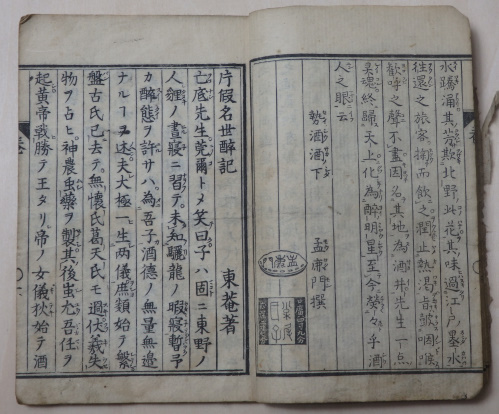 水踴涌其芳欺北野此花其味過江戸墨水
往還之旅客掬而飲之潤止熱渇者皷咽喉
歓呼之聲不盡因名其地為酒井先生一点
魂終歸天上化為酔明星至今熒々乎酒
人之眼云
勢酒酒下 孟 陣撰
片假名世酔記
東菴著
亡底先生莞爾トメ笑曰子ハ固ニ東野ノ
人鯉ノ晝寝ニ習テ未知驪龍ノ暇寝暫予
カ酔態ヲ許サハ為吾子酒徳ノ無量無邊
ナルヿヲ述夫大極一生両儀庶類始テ繁
盤古氏已去テ無懐氏葛天氏モ過伏羲失
物ヲ占ヒ神農虫藥ヲ製其後蚩尤吾任ヲ
起黄帝戰勝テ王タリ帝ノ女儀狄始テ酒